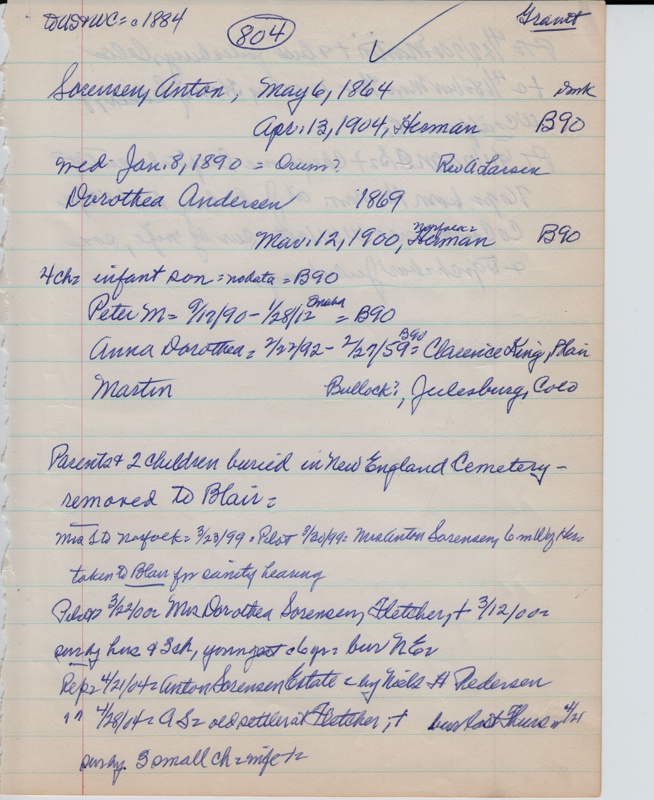 to US & WC = c1884
804
Grant
Sorensen, Anton, May 6, 1864
Apr. 13, 1904, Herman B90
med Jan. 8, 1890 = Orum? Rev A Larsen
Dorothea Andersen 1869
Norfolk =
Mar. 12, 1900, Herman B90
4 ch = infant son = no data = B90
Peter M = 9/17/90 – 1/28/12 Omaha = B90
Anna Dorothea = 2/27/92 – 2/27/59 = B90 Clarence King, Plain
Martin Bullock?, Julesburg, Colo
Parents & 2 children buried in New England Cemetery –
removed to Blair =
Mrs S to Norfolk = 3/23/99 = Pilot 3/30/99 = Mrs Anton Sorensen, 6 mi W by Her
taken to Blair for sanity hearing
Pilot 3/22/00 = Mrs Dorothea Sorensen, Fletcher, + 3/12/00 =
survg hus & 3 ch, youngest c6 yr = bur N E
Rep = 4/21/04 = Anton Sorensen Estate = by Niels H Pedersen
" " 4/28/04 = A S = old settler at Fletcher, + bur last Thurs = 4/21
survg. 3 small ch = wife +